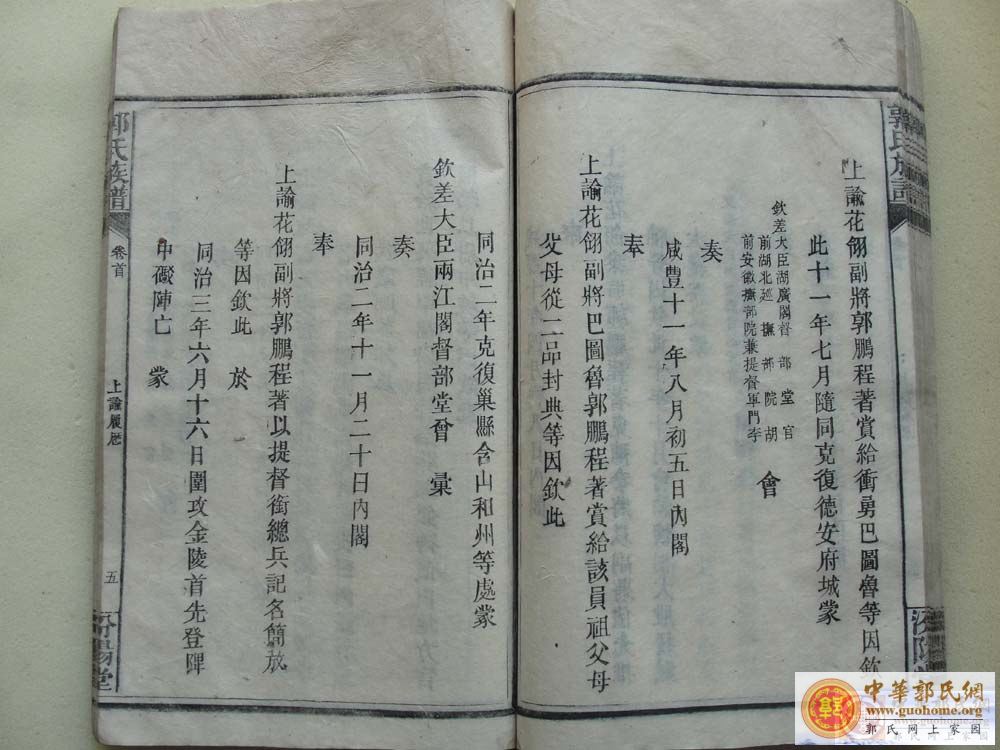 上諭花翎副將郭鵬程著賞給衝勇巴圖魯等因欽
此十一年七月隨同克復德安府城蒙
欽差大臣湖廣閣督部堂官
前湖北巡撫部院胡
前安徽撫部院兼提督軍門李
會
奏
咸豐十一年八月初五日內閣
奉
上諭花翎副將巴圖魯郭鵬程著賞給該員祖父母
父母從二品封典等因欽此
同治二年克復巢縣含山和州等處蒙
欽差大臣兩江閣督部堂曾 彙
奏
同治二年十一月二十日內閣
奉
上諭花翎副將郭鵬程著以提督銜總兵記名簡放
等因欽此 於
同治三年六月十六日圍攻金陵首先登陴
中礮陣亡 蒙
郭氏族譜
卷首
上諭履歷
五
汾陽堂
郭氏族譜
汾陽堂
中華郭氏網
www.guohome.org
郭氏网上家园